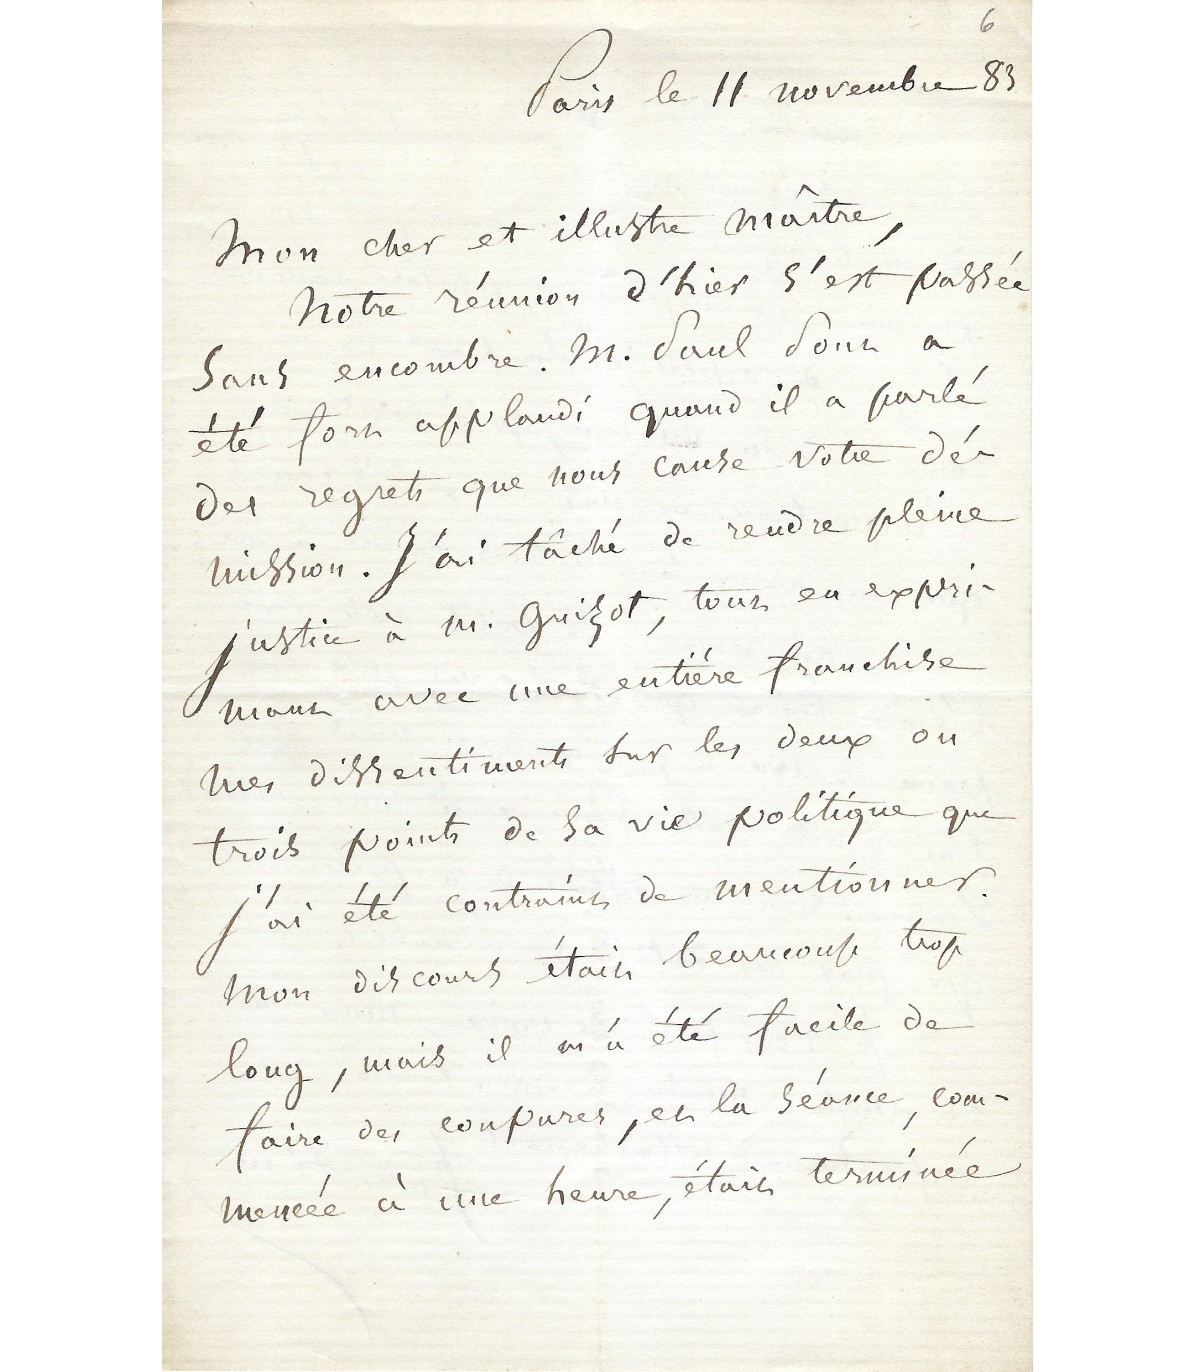 6
Paris le 11 novembre 83
Mon cher et illustre maître,
Notre réunion d'hier s'est passée
sans encombre. M. Paul Pont a
été fort applaudi quand il a parlé
des regrets que nous cause votre dé-
mission. J'ai tâché de rendre pleine
justice à M. Guizot, tout en expri-
mant avec une entière franchise
mes dissentiments sur les deux ou
trois points de sa vie politique que
j'ai été contraint de mentionner.
Mon discours était beaucoup trop
long, mais il m'a été facile de
faire des coupures, et la séance, com-
mencée à une heure, était terminée